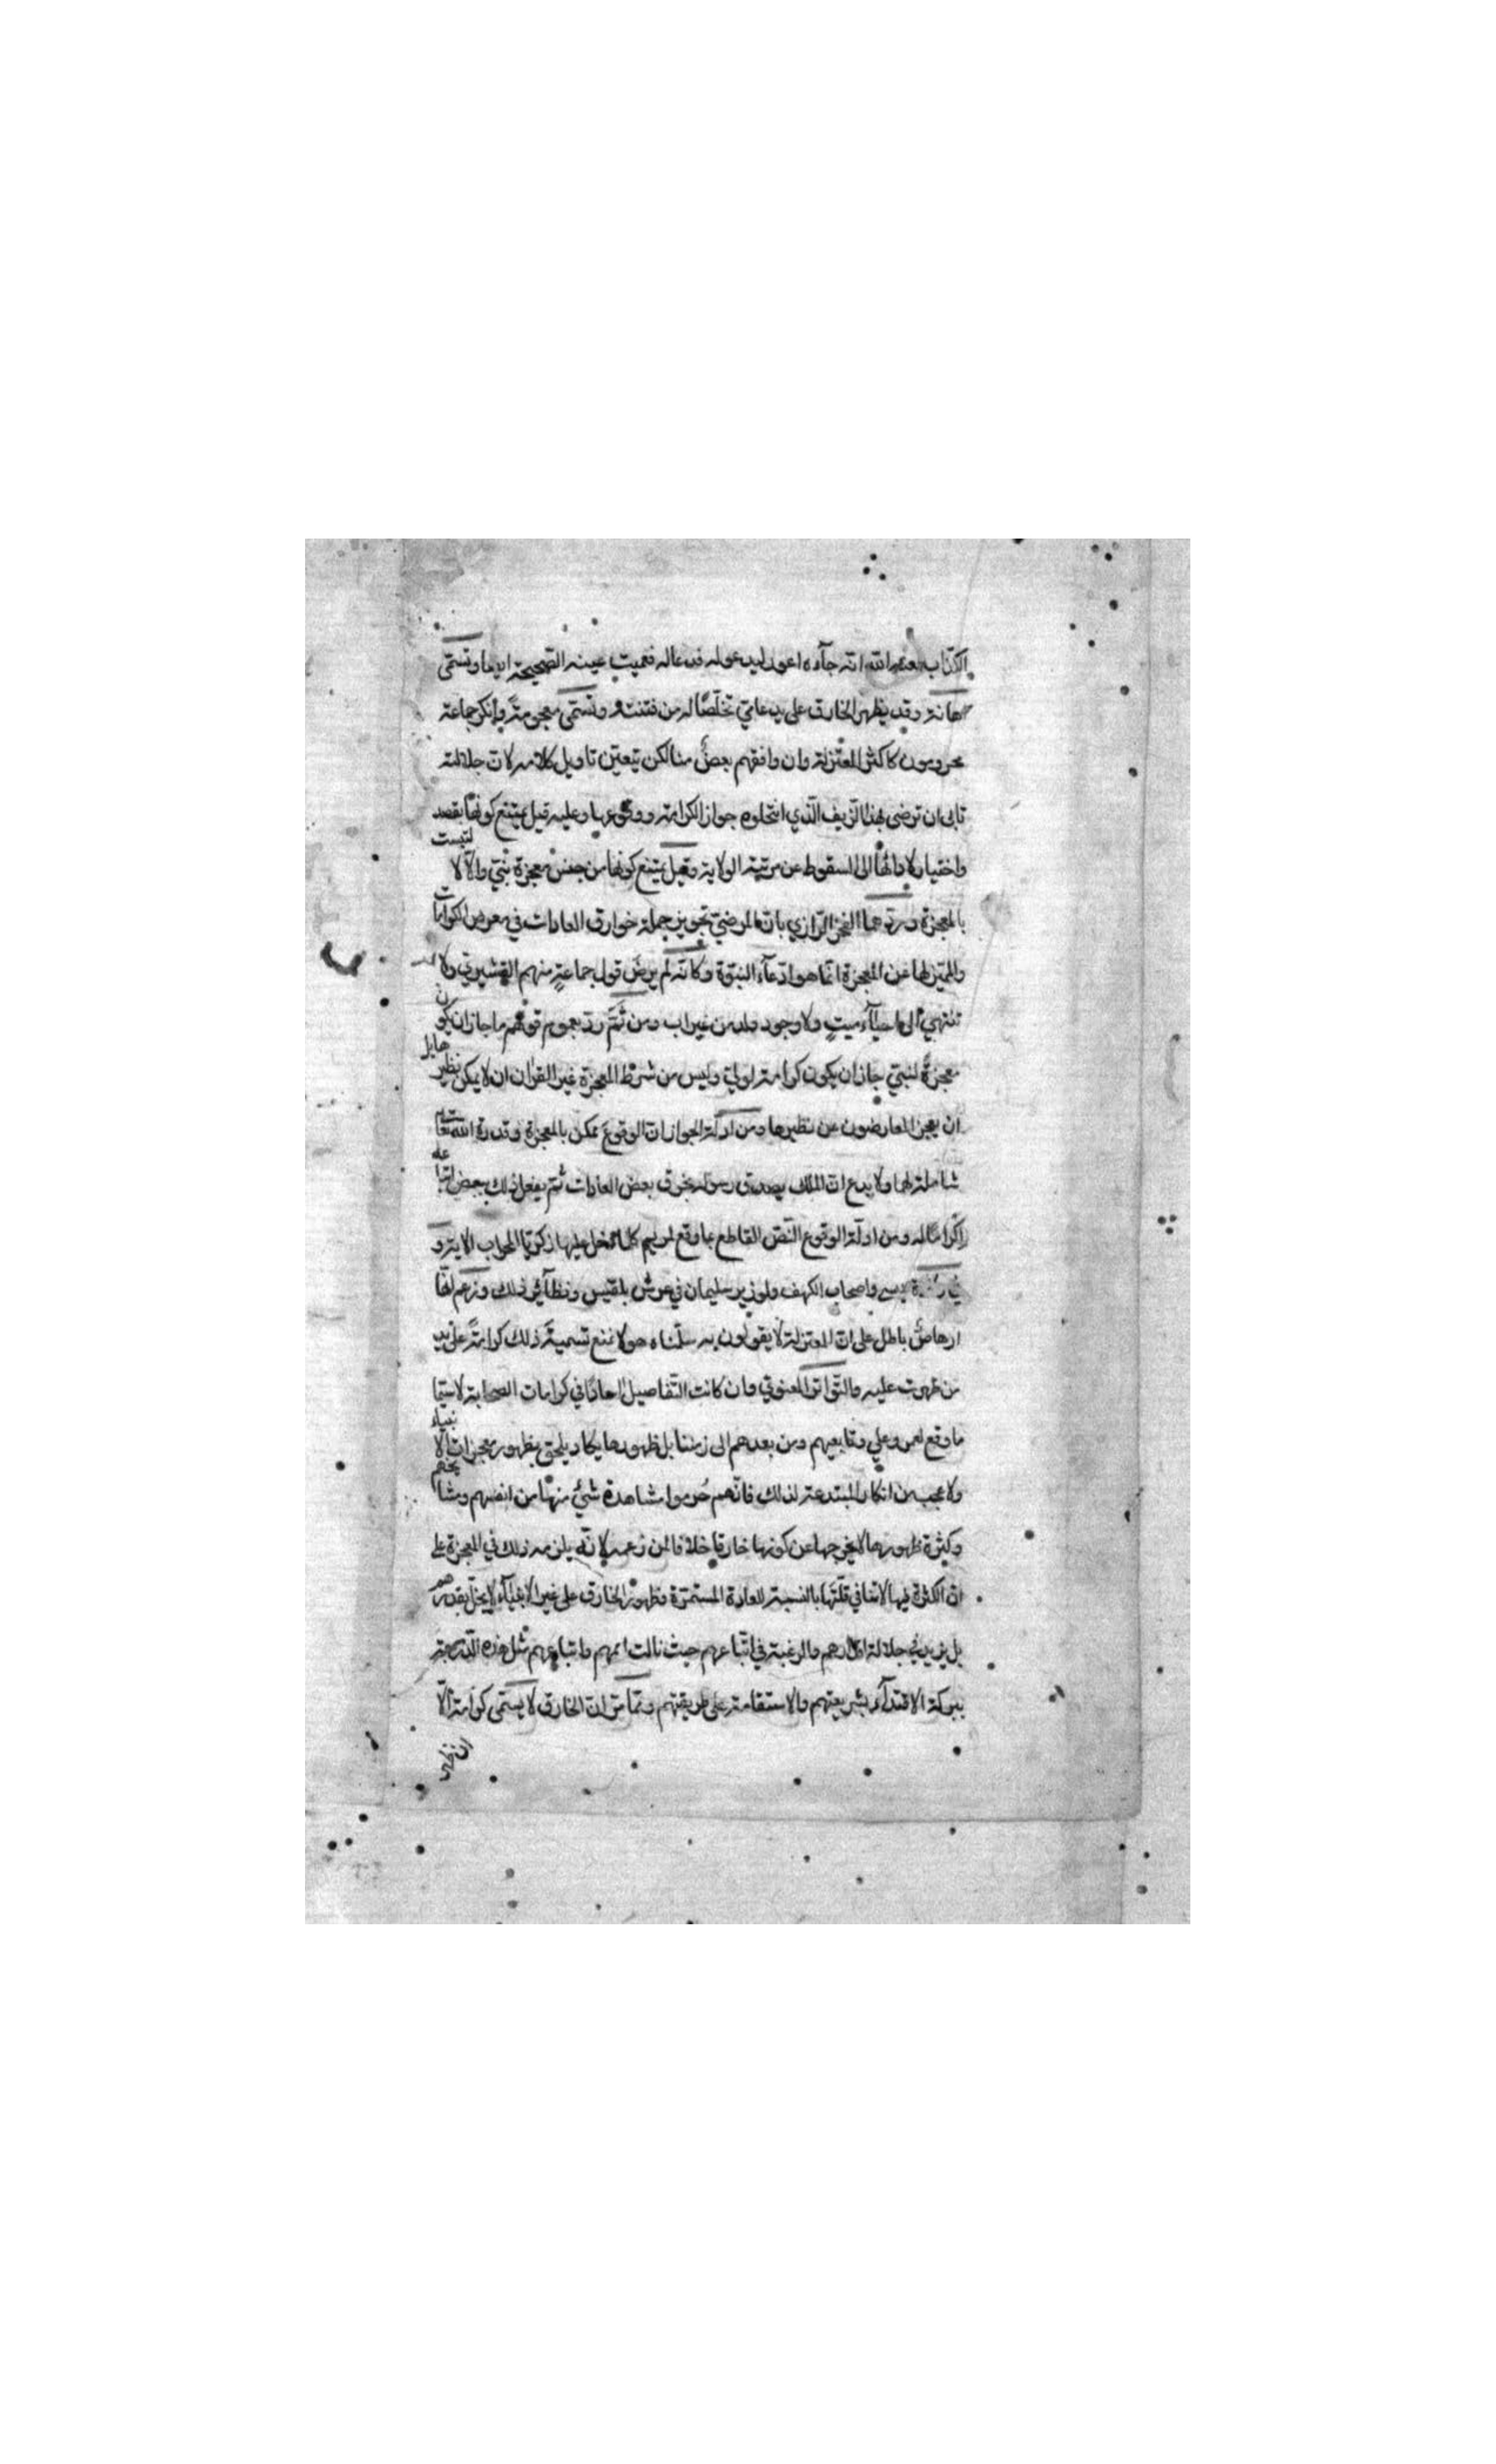 الكذّاب لعنه الله انّه جآءه اعور ليدعو له فدعا له فعميت عينه الصّحيحة ايضا وتسمّى
اهانة وقد يظهر الخارق على يد عامّيّ تخلّصًا له من فتنة وتسمّى معونةً وانكر جماعة
محرومون كاكثر المعتزلة وان وافقهم بعضٌ منا لكن يتعيّن تاويل كلامه لان جلالته
تابى ان ترضى بهذا الزّيف الّذي انتحلوه جواز الكرامة ووقوعها وعليه قيل يمتنع كونها بقصد
واختيار لادائها الى السقوط عن مرتبة الولاية وقيل يمتنع كونها من جنس معجزة نبيّ والّا لالتبست
بالمعجزة وردّهما الفخر الرّازي بانّ المرضيّ تجويز جملة خوارق العادات في معرض الكرامات
والمميّز لها عن المعجزة انّما هو ادّعآء النبوّة وكانّه لم يرض قول جماعةٍ منهم القشيريّ ولا
تنتهي الى احيآء ميتٍ ولا وجود ولد من غير اب ومن ثَمّ ردّ بعموم قولهم ما جاز ان يكون
معجزةً لنبيّ جاز ان يكون كرامة لوليّ وليس من شرط المعجزة غير القران ان لا يمكن نظيرها بل
ان يعجز المعارضون عن نظيرها ومن ادلّة الجواز انّ الوقوع ممكن بالمعجزة وقدرة الله تعالى
شاملة لها ولا بدع انّ الملك يصدق رسوله بخرق بعض العادات ثمّ يفعل ذلك ببعض اتباعه
اكرامًا له ومن ادلّة الوقوع النّصّ القاطع بما وقع لمريم كلما دخل عليها زكريّا المحراب الاية و
في واصحاب الكهف ولوزير سليمان في عرش بلقيس ونظآئر ذلك وزعم انّها
ارهاصٌ باطل على انّ المعتزلة لا يقولون به سلّمناه هو لا يمنع تسميةَ ذلك كرامةً على يد
من ظهرت عليه والتّواتر المعنويّ وان كانت التّفاصيل احادًا في كرامات الصّحابة لا سيّما
ما وقع لعمر وعلي وتابعيهم ومن بعدهم الى زمننا بل ظهورها يكاد يلحق بظهور معجزات الانبياء
ولا عجب من انكار المبتدعة لذلك فانّهم حُرموا مشاهدة شيْءٍ منها من انفسهم ومشايخهم
وكثرة ظهورها لا يخرجها عن كونها خارقا خلافا لمن زعمه لانّه يلزمه ذلك في المعجزة على
انّ الكثرة فيها لا تنافي قلّتها بالنسبة للعادة المستمرّة وظهور الخارق على غير الانبيآء لا يخلّ بقدرهم
بل يزيد في جلالة اقدارهم والرغبة في اتّباعهم حيث نالت اممهم واتباعهم مثل هذه الدّرجة
ببركة الاقتدآء بشريعتهم والاستقامة على طريقتهم وممّا مرّ انّ الخارق لا يسمّى كرامة الّا
ان ظهر